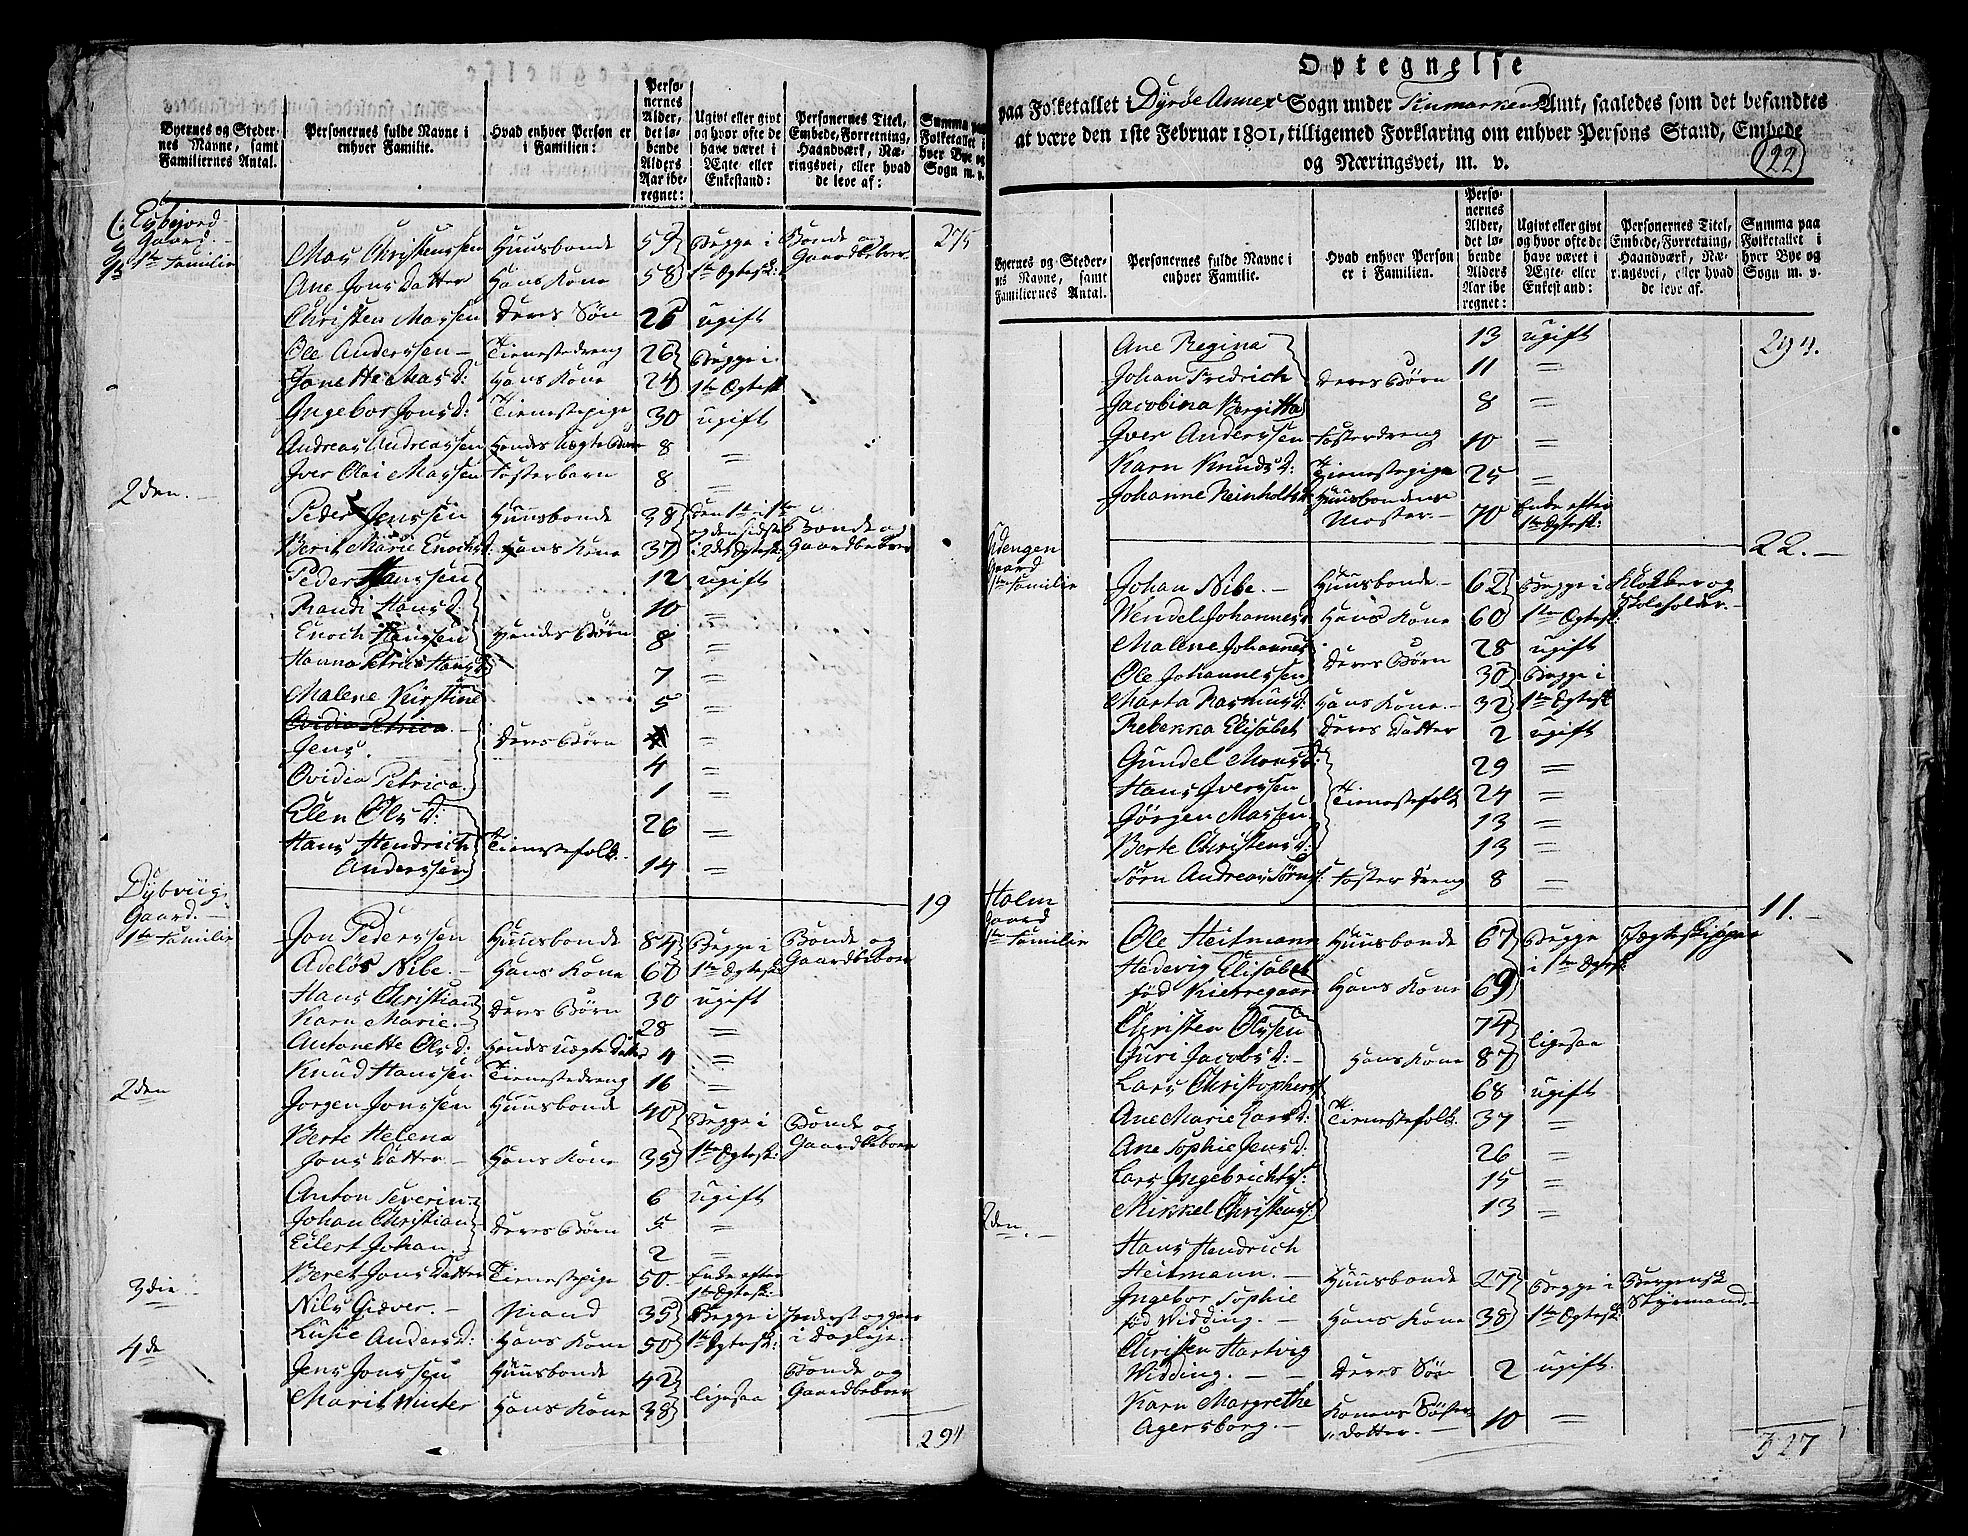 Byernes og Steder-
nes Navne, samt
Familiernes Antal.
Personernes fulde Navne i
enhver Familie.
Hvad enhver Person er
i Familien:
Perso-
nernes
Alder,
det lø-
bende
Alders
Aar ibe-
regnet:
Ugivt eller givt
og hvor ofte de
have været i
Ægte eller
Enkestand:
Personernes Titel,
Embede, Forretning,
Haandværk, Næ-
ringsvei, eller hvad
de leve af:
Summa paa
Folketallet i
hver Bye og
Sogn m. v.
Gaard.
1ste Familie
275
Mas Christenssen Huusbonde 59 Begge i Bonde og
Ane Jons Datter Hans Kone 58 1ste Ægtesk: Gaardbeboer
Christen Massen Deres Søn 26 ugift
Ole Anderssen Tienestedreng 26 Begge i
Janette Mas D: Hans Kone 24 1ste Ægtesk:
Ingebor Jons D: Tienestepige 30 ugift
Andreas Andreassen Hendes Uægte Søn 8 =
Iver Olai Massen Fosterbarn 8 =
2den.
Peder Jenssen Huusbonde 38 den 1ste i 1ste og den sidste Bonde og
Berit Marie Enochs D: Hans Kone 37 i 2det Ægtesk: Gaardbeboer
Peder Hanssen 12 ugift
Randi Hans D: 10 =
Enoch Hanssen Hendes Børn 8 =
Hanna Petrica Hans D: 7 =
Malene Kirstine 5 =
Ovidia Petrica
Jens Deres Børn 4 =
Ovidia Petrica 1 =
Elen Ols D: 26 =
Hans Hendrich Tienestefolk.
Anderssen 14 =
19
Dybviig
Gaard.
1ste Familie
Jon Pederssen Huusbonde 84 Begge i Bonde og
Adelös Nibe. Hans Kone 67 1ste Ægtesk: Gaardbeboer
Hans Christian Deres Børn 30 ugift
Karn Marie. 28 =
Antonette Ols D: Hendes Uægte Datter 4 =
Knud Hanssen Tienestedreng 16 =
2den
Jørgen Jonssen Huusbonde 40 Begge i Bonde og
Berte Helena
Jons Datter Hans Kone 35 1ste Ægtesk: Gaardbeboer
Anton Severin 6 ugift
Johan Christian Deres Børn 5 =
Eilert Johan 2 =
Beret Jons Datter Tienestepige 50 Enke efter
1ste Ægtesk:
3die
Nils Giæver. Mand 35 Begge i Inderst og gaar
Lusie Anders D: Hans Kone 50 1ste Ægtesk: i Dagleje.
4de
Jens Jonssen Huusbonde 42 ligesaa Bonde og
Marit Winter Hans Kone 38 Gaardbeboer
294
Optegnelse
paa Folketallet i Dyrøe Annex Sogn under Finmarkens Amt, saaledes som det befandtes
at være den 1ste Februar 1801, tilligemed Forklaring om enhver Persons Stand, Embede
og Næringsvei, m. v.
122
Byernes og Steder-
nes Navne, samt
Familiernes Antal.
Personernes fulde Navne i
enhver Familie.
Hvad enhver Person
er i Familien.
Perso-
nernes
Alder,
det lø-
bende
Alders
Aar ibe
regnet:
Ugivt eller givt
og hvor ofte de
have været i
Ægte eller
Enkestand:
Personernes Titel,
Embede, Forretning,
Haandværk, Næ-
ringsvei, eller hvad
de leve af.
Summa paa
Folketallet i
hver Bye og
Sogn m. v.
Ane Regina 13 ugift 294.
Johan Fredrich Deres Børn 11 =
Jacobina Bergitta 8 =
Iver Anderssen Fosterdreng 10 =
Karn Knuds D: Tienestepige 25 =
Johanne Reinholts D: Huusbondens
Moster. 70 Enke efter
1ste Ægtesk:
22.
Gaard
1ste Familie
Johan Nibe. Huusbonde 62 Begge i Klokker og
Wendel Johannes D: Hans Kone 60 1ste Ægtesk: Skoleholder.
Malene Johannes D: Deres Børn 28 ugift
Ole Johannessen 30 Begge i
Marta Rasmus D: Hans Kone 32 1ste Ægtesk:
Rebekka Elisabet Deres Datter 2 ugift
Gundel Mons D: 29 =
Hans Iverssen Tienestefolk 24 =
Jørgen Massen 13 =
Berte Christens D: 13 =
Sørn Andreas Sørns: Foster Dreng 8 =
11.
Holm
Gaard
1ste Familie
Ole Heitmann Huusbonde 67 Begge Jægteskipper
Hedevig Elisabet i 1ste Ægtesk:
fød Kierregaard Hans Kone 69
Christen Olssen 74 ligesaa
Guri Jacobs D: Hans Kone 87
Lars Christophers: 68 ugift
Ane Marie Lars D: Tienestefolk 37 =
Ane Sophie Jens D: 26 =
Lars Ingebrichts: 15 =
Mikkel Christens: 13 =
2den.
Hans Hendrich
Heitmann. Huusbonde 27 Begge i Bergensk
Ingebor Sophie
fød Widding. Hans Kone 38 1ste Ægtesk: Styrmand.
Christen Hartvig
Widding. Deres Søn 2 ugift.
Karn Margrethe Konens Søster
Agersborg. Datter. 10 =
327